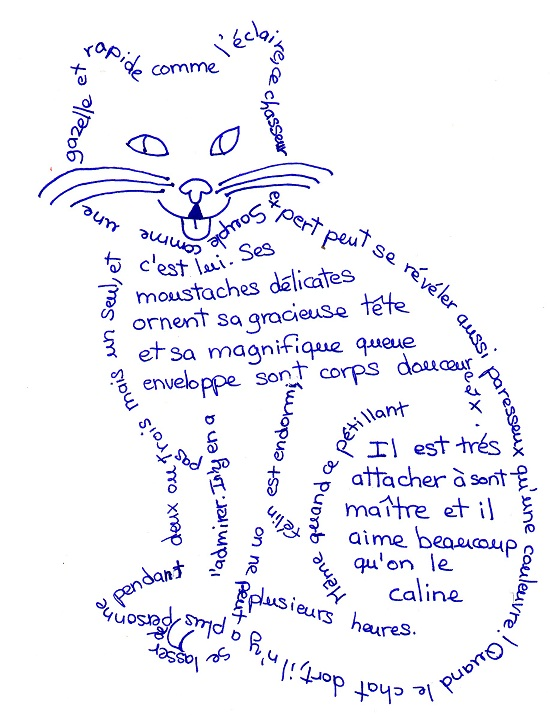 Souple comme une
gazelle et rapide comme l'éclaire, ce chasseur
expert peut se révéler aussi paresseux qu'une couleuvre! Quand le chat dort, il n'y a plus personne
pendant
plusieurs heures.
Même quand ce pétillant
félin est endormi,
on ne peut
se lasser de
l'admirer. Il n'y en a
pas
deux ou trois mais un seul, et
c'est lui. Ses
moustaches délicates
ornent sa gracieuse tête
et sa magnifique queue
enveloppe sont corps douceureux.
Il est trés
attacher à sont
maître et il
aime beaucoup
qu'on le
caline